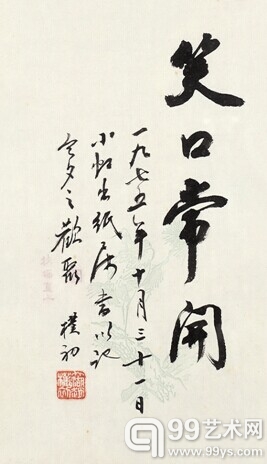 笑口常開
一九七五年十月三十一日
小出紙属書以記
今夕之歡聚 樸初
99艺术网
www.99ys.com